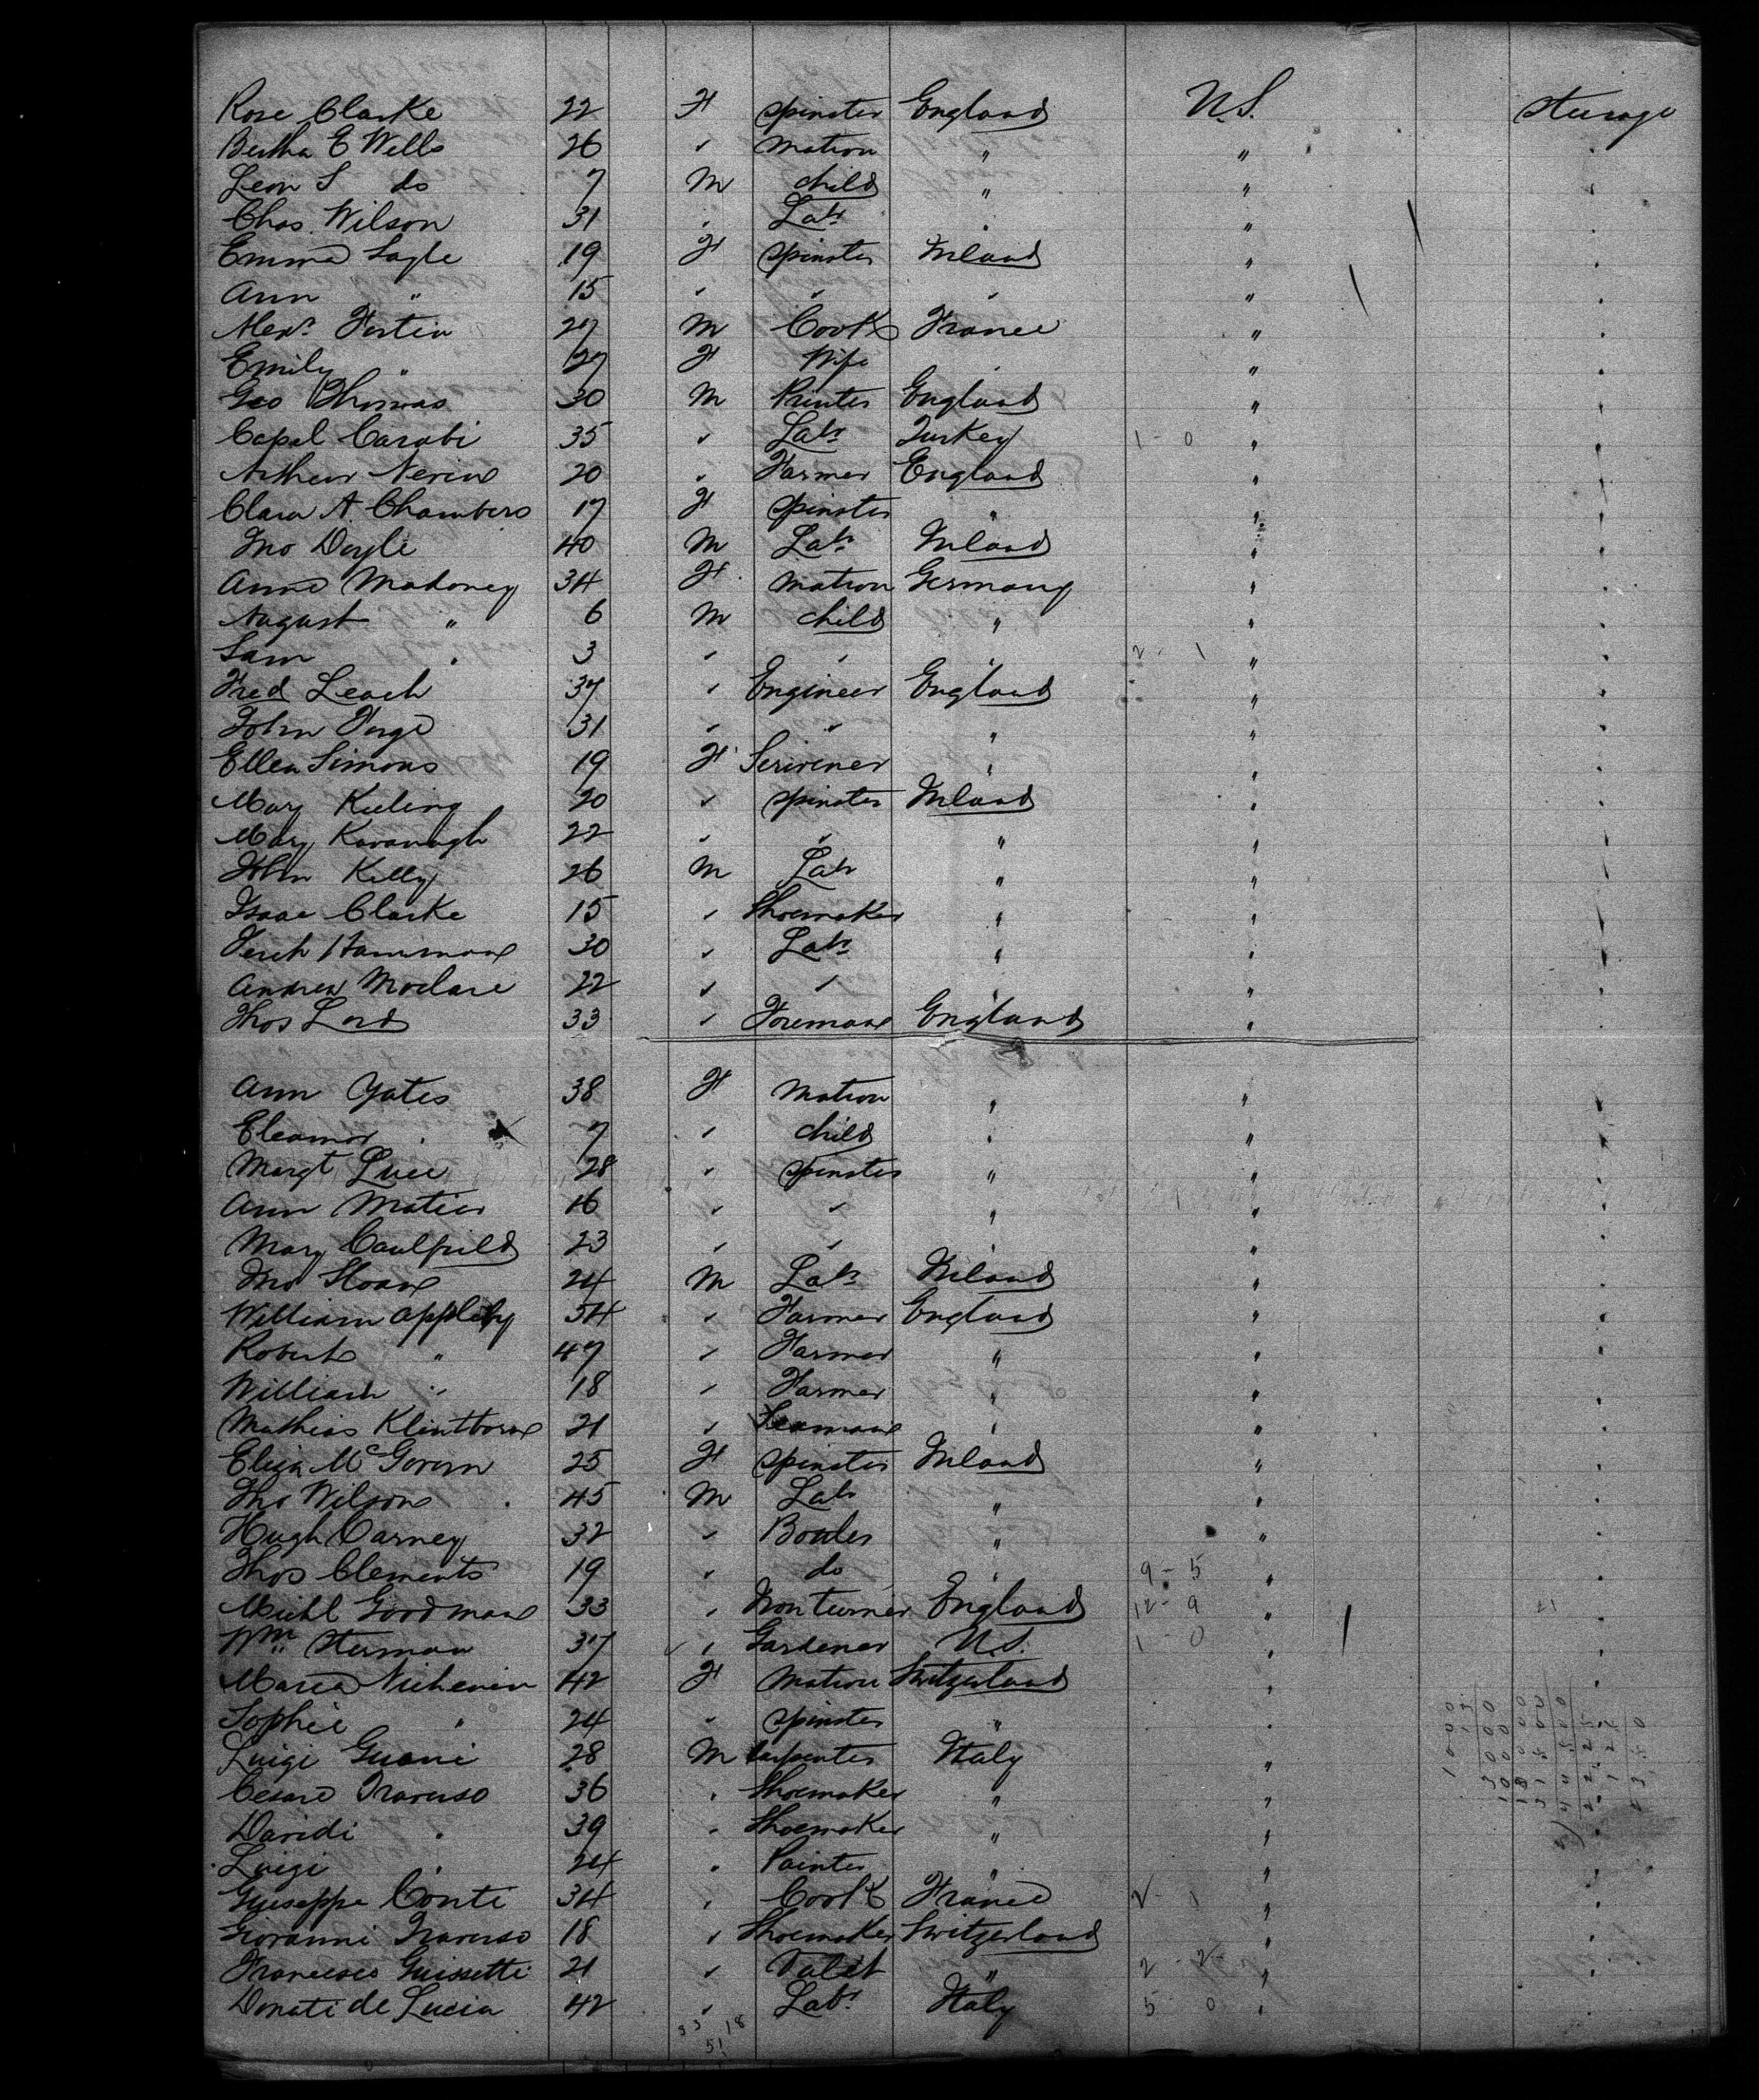 Rose Clarke 22 F spinster England U.S. steerage
Bertha E Wells 26 " matron " " "
Leon S do 7 M child " " "
Chas. Wilson 31 " Labr " " "
Emma Logle 19 F spinster Ireland " "
Ann " 15 " " " " "
Alexr Fortin 27 M Cook France " "
Emily " 27 F Wife " " "
Geo Thomas 30 M Printer England " "
Capel Carabi 35 " Labr Turkey 1 - 0 " "
Arthur Nevin 20 " Farmer England " "
Clara A. Chambers 17 F spinster " " "
Jno Doyle 40 M Labr Ireland " "
Anna Mahoney 34 F matron Germany " "
August " 6 M child " " "
Sam " 3 " " " 2 - 1 " "
Fred Leach 37 " Engineer England " "
John Forge 31 " " " " "
Ellen Simons 19 F Scrivener " " "
Mary Keeling 20 " spinster Ireland " "
Mary Kavanagh 22 " " " " "
John Kelly 26 M Labr " " "
Isaac Clarke 15 " Shoemaker " " "
Hamman 30 " Labr " " "
Andrew Moclare 22 " " " " "
Thos Lord 33 " Foreman England " "
Ann Yates 38 F Matron " " "
Eleanor " 7 " child " " "
Margt Luce 28 " spinster " " "
Ann Matier 16 " " " " "
Mary Caulfield 23 " " " " "
Jno Sloan 24 M Labr Ireland " "
William Appleby 54 " Farmer England " "
Robert " 47 " Farmer " " "
William " 18 " Farmer " " "
Mathias Klintborn 21 " Seaman " " "
Eliza McGovern 25 F spinster Ireland " "
Jno Wilson 45 M Labr " " "
Hugh Carney 32 " " " "
Thos Clements 19 " do " 9 - 5 " "
Michl Goodman 33 " Iron turner England 12 - 9 " 21 "
Wm Sterman 37 " Gardener U.S. 1 - 0 " "
Maria 42 F Matron Switzerland " "
Sophie " 24 " spinster " " "
Luigi Guani 28 M Carpenter Italy " "
Cesare Traverso 36 " Shoemaker " " "
Davidi " 39 " Shoemaker " " "
Luigi " 24 " Painter " " "
Giuseppe Conti 34 " Cook France 2 - 1 " "
Giovanni Traverso 18 " Shoemaker Switzerland " "
Francesco Guissetti 21 " Valet " 2 - 2 " "
Donati de Lucia 42 " Labr Italy 5 0 " "
33 18
51